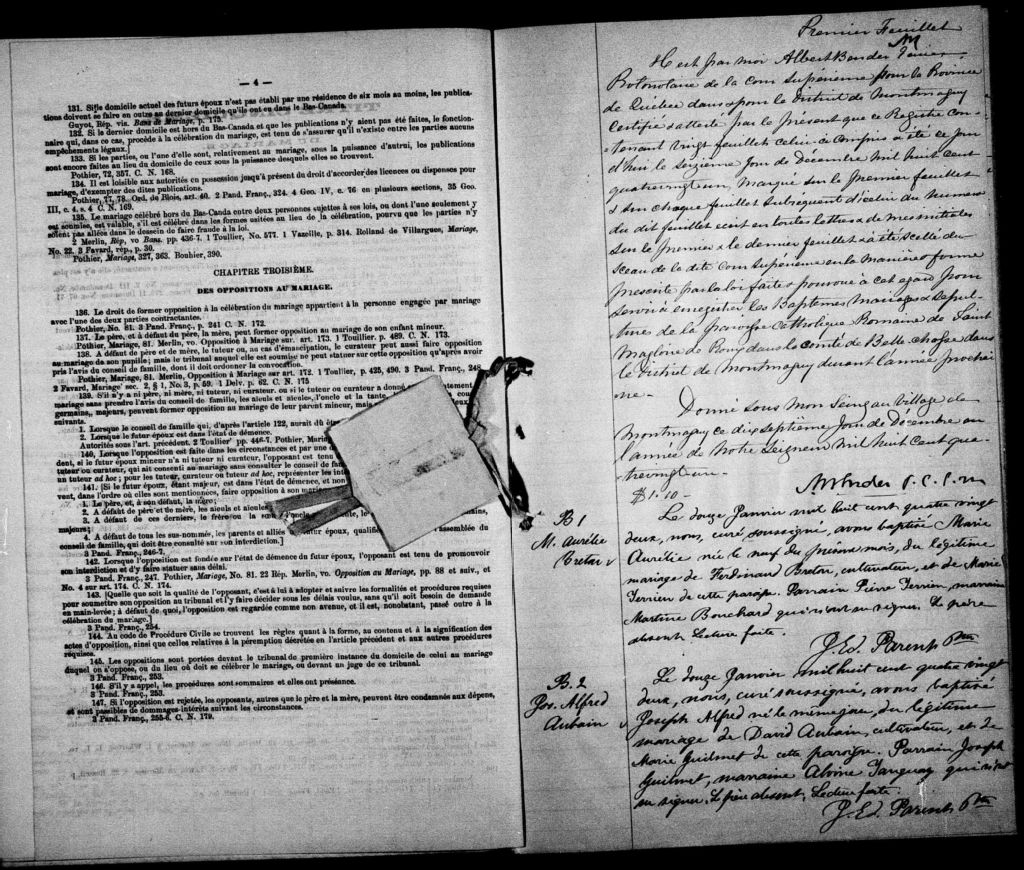 — 4 —
131. Si le domicile actuel des futurs époux n'est pas établi par une résidence de six mois au moins, les publica-
tions doivent se faire en outre au dernier domicile qu'ils ont eu dans le Bas-Canada.
Guyot, Rép. vis. Bans de Mariage, p. 175.
132. Si le dernier domicile est hors du Bas-Canada et que les publications n'y aient pas été faites, le fonction-
naire qui, dans ce cas, procède à la célébration du mariage, est tenu de s'assurer qu'il n'existe entre les parties aucuns
empêchements légaux.
133. Si les parties, ou l'une d'elle sont, relativement au mariage, sous la puissance d'autrui, les publications
sont encore faites au lieu du domicile de ceux sous la puissance desquels elles se trouvent.
Pothier, 72, 357. C. N. 168.
134. Il est loisible aux autorités en possession jusqu'à présent du droit d'accorder les licences ou dispenses pour
mariage, d'exempter des dites publications.
Pothier, 77, 78. Ord. de Blois, art. 40. 2 Pand. Franç., 324. 4 Geo. IV, c. 76 en plusieurs sections, 35 Geo.
III, c. 4, s. 4 C. N. 169.
135. Le mariage célébré hors du Bas-Canda entre deux personnes sujettes à ses lois, ou dont l'une seulement y
est soumise, est valable, s'il est célébré dans les formes usitées au lieu de la célébration, pourvu que les parties n'y
soient pas allées dans le dessein de faire fraude à la loi.
2 Merlin, Rép, vo Bans. pp. 436-7. 1 Toullier, No. 577. 1 Vazeille, p. 314. Rolland de Villargues, Mariage,
No. 22. 3 Favard, rép., p. 30.
Pothier, Mariage, 327, 363. Bouhier, 390.
CHAPITRE TROISIÈME.
DES OPPOSITIONS AU MARIAGE.
136. Le droit de former opposition à la célébration du mariage appartient à la personne engagée par mariage
avec l'une des deux parties contractantes.
Pothier, No. 81. 3 Pand. Franç., p. 241 C. N. 172.
137. Le père, et à défaut du père, la mère, peut former opposition au mariage de son enfant mineur.
Pothier, Mariage, 81. Merlin, vo. Opposition à Mariage sur. art. 173. 1 Toullier. p. 489. C. N. 173.
138. A défaut de père et de mère, le tuteur ou, au cas d'émancipation, le curateur peut aussi faire opposition
au mariage de son pupille; mais le tribunal auquel elle est soumise ne peut statuer sur cette opposition qu'après avoir
pris l'avis du conseil de famille, dont il doit ordonner la convocation.
Pothier, Mariage, 81. Merlin, Opposition à Mariage sur art. 172. 1 Toullier, p. 425, 490. 3 Pand. Franç., 248
2 Favard, Mariage sec. 2, § 1, No. 3, p. 59. 1 Delv. p. 62. C. N. 175
139. S'il n'y a ni père, ni mère, ni tuteur, ni curateur, ou si le tuteur ou curateur a donné
mariage sans prendre l'avis du conseil de famille, les aïeuls et aïeules, l'oncle et la tante,
germains, majeurs, peuvent former opposition au mariage de leur parent mineur, mais
suivants.
1. Lorsque le conseil de famille qui, d'après l'article 122, aurait dû être
2. Lorsque le futur époux est dans l'état de démence.
Autorités sous l'art. précédent. 2 Toullier pp. 446-7. Pothier, Mariage
140, Lorsque l'opposition est faite dans les circonstances et par une
dent, si le futur époux mineur n'a ni tuteur ni curateur, l'opposant est tenu de
tuteur ou curateur, qui ait consenti au mariage sans consulter le conseil de
un tuteur ad hoc; pour les tuteur, curateur ou tuteur ad hoc, représenter les
141. [Si le futur époux, étant majeur, est dans l'état de démence, et non
vent, dans l'ordre où elles sont mentionnées, faire opposition à son mariage
1. Le père, et, à son défaut, la mère;
2. A défaut de père et de mère, les aïeuls et aïeules
3. A défaut de ces derniers, le frère ou la
majeurs;
4. A défaut de tous les sus-nommés, les parents et alliés
conseil de famille, qui doit être consulté sur son interdiction.]
3 Pand. Franç., 246-7.
142. Lorsque l'opposition est fondée sur l'état de démence du futur époux, l'opposant est tenu de promouvoir
son interdiction et d'y faire statuer sans délai.
3 Pand. Franç., 247. Pothier, Mariage, No. 81. 22 Rép. Merlin, vo. Opposition au Mariage, pp. 88 et suiv., et
No. 4 sur art. 174. C. N. 174.
143. [Quelque soit la qualité de l'opposant, c'est à lui à adopter et suivre les formalités et procédures requises
pour soumettre son opposition au tribunal et l'y faire décider sous les délais voulus, sans qu'il soit besoin de demande
en main-levée; à défaut de quoi, l'opposition est regardée comme non avenue, et il est, nonobstant, passé outre à la
célébration du mariage.]
3 Pand. Franç., 254.
144. Au code de Procédure Civile se trouvent les règles quant à la forme, au contenu et à la signification des
actes d'opposition, ainsi que celles relatives à la péremption décrétée en l'article précédent et aux autres procédures
requises.
145. Les oppositions sont portées devant le tribunal de première instance du domicile de celui au mariage
duquel on s'oppose, ou du lieu où doit se célébrer le mariage, ou devant un juge de ce tribunal.
3 Pand. Franç., 253.
146. S'il y a appel, les procédures sont sommaires et elles ont préséance.
3 Pand. Franç., 253.
147. Si l'opposition est rejetée, les opposants, autres que le père et la mère, peuvent être condamnés aux dépens,
et sont passibles de dommages-intérêts suivant les circonstances.
3 Pand. Franç., 255-6. C. N. 179.
Premier Feuillet
Il est par moi Albert Bender
Protonotaire de la Cour Supérieure pour la Province
de Québec dans & pour le District de Montmagny
Certifié & attesté par le présent que ce Registre con-
tenant Vingt feuillets celui-ci compris a été ce jour
d'hui le seizième jour de Décembre Mil huit cent
quatrevingt un, Marqué sur le premier feuillet
& sur chaque feuillet subséquent d'icelui du numéro
du dit feuillet écrit en toutes lettres & de mes initiales
sur le premier & le dernier feuillet & a été scellé du
sceau de la dite Cour Supérieure en la manière & forme
prescrite par la loi faite & pourvue à cet égard pour
servir à enregistrer les Baptêmes Mariages & Sépul-
tures de la paroisse Catholique Romaine de Saint
Magloire de Roux dans le comté de Bellechasse dans
le District de Montmagny durant l'année prochai-
ne-
Donné sous mon Seing au Village de
Montmagny ce dix septième jour de Décembre en
l'année de Notre Seigneur Mil huit cent qua-
trevingt un-
$1.10- ABender P. C. S. M
B 1
M. Aurélie
Breton
Le douze Janvier mil huit cent quatre vingt
deux, nous, curé soussigné, avons baptisé Marie
Aurélie née le neuf du présent mois, du légitime
mariage de Ferdinand Breton, cultivateur, et de Marie
Terrien de cette paroisse. Parrain Pierre Terrien, marraine
Martine Bouchard qui n'ont su signer. Le père
absent. Lecture faite.
J. Ed. Parent, Ptre
B. 2
Jos. Alfred
Aubain
Le douze Janvier mil huit cent quatre vingt
deux, nous, curé soussigné, avons baptisé
Joseph Alfred né le même jour, du légitime
mariage de David Aubain, cultivateur, et de
Marie Guilmet de cette paroisse. Parrain Joseph
Guilmet, marraine Alvine Tanguay qui n'ont
su signer. Le père absent, Lecture faite.
J. Ed. Parent, Ptre